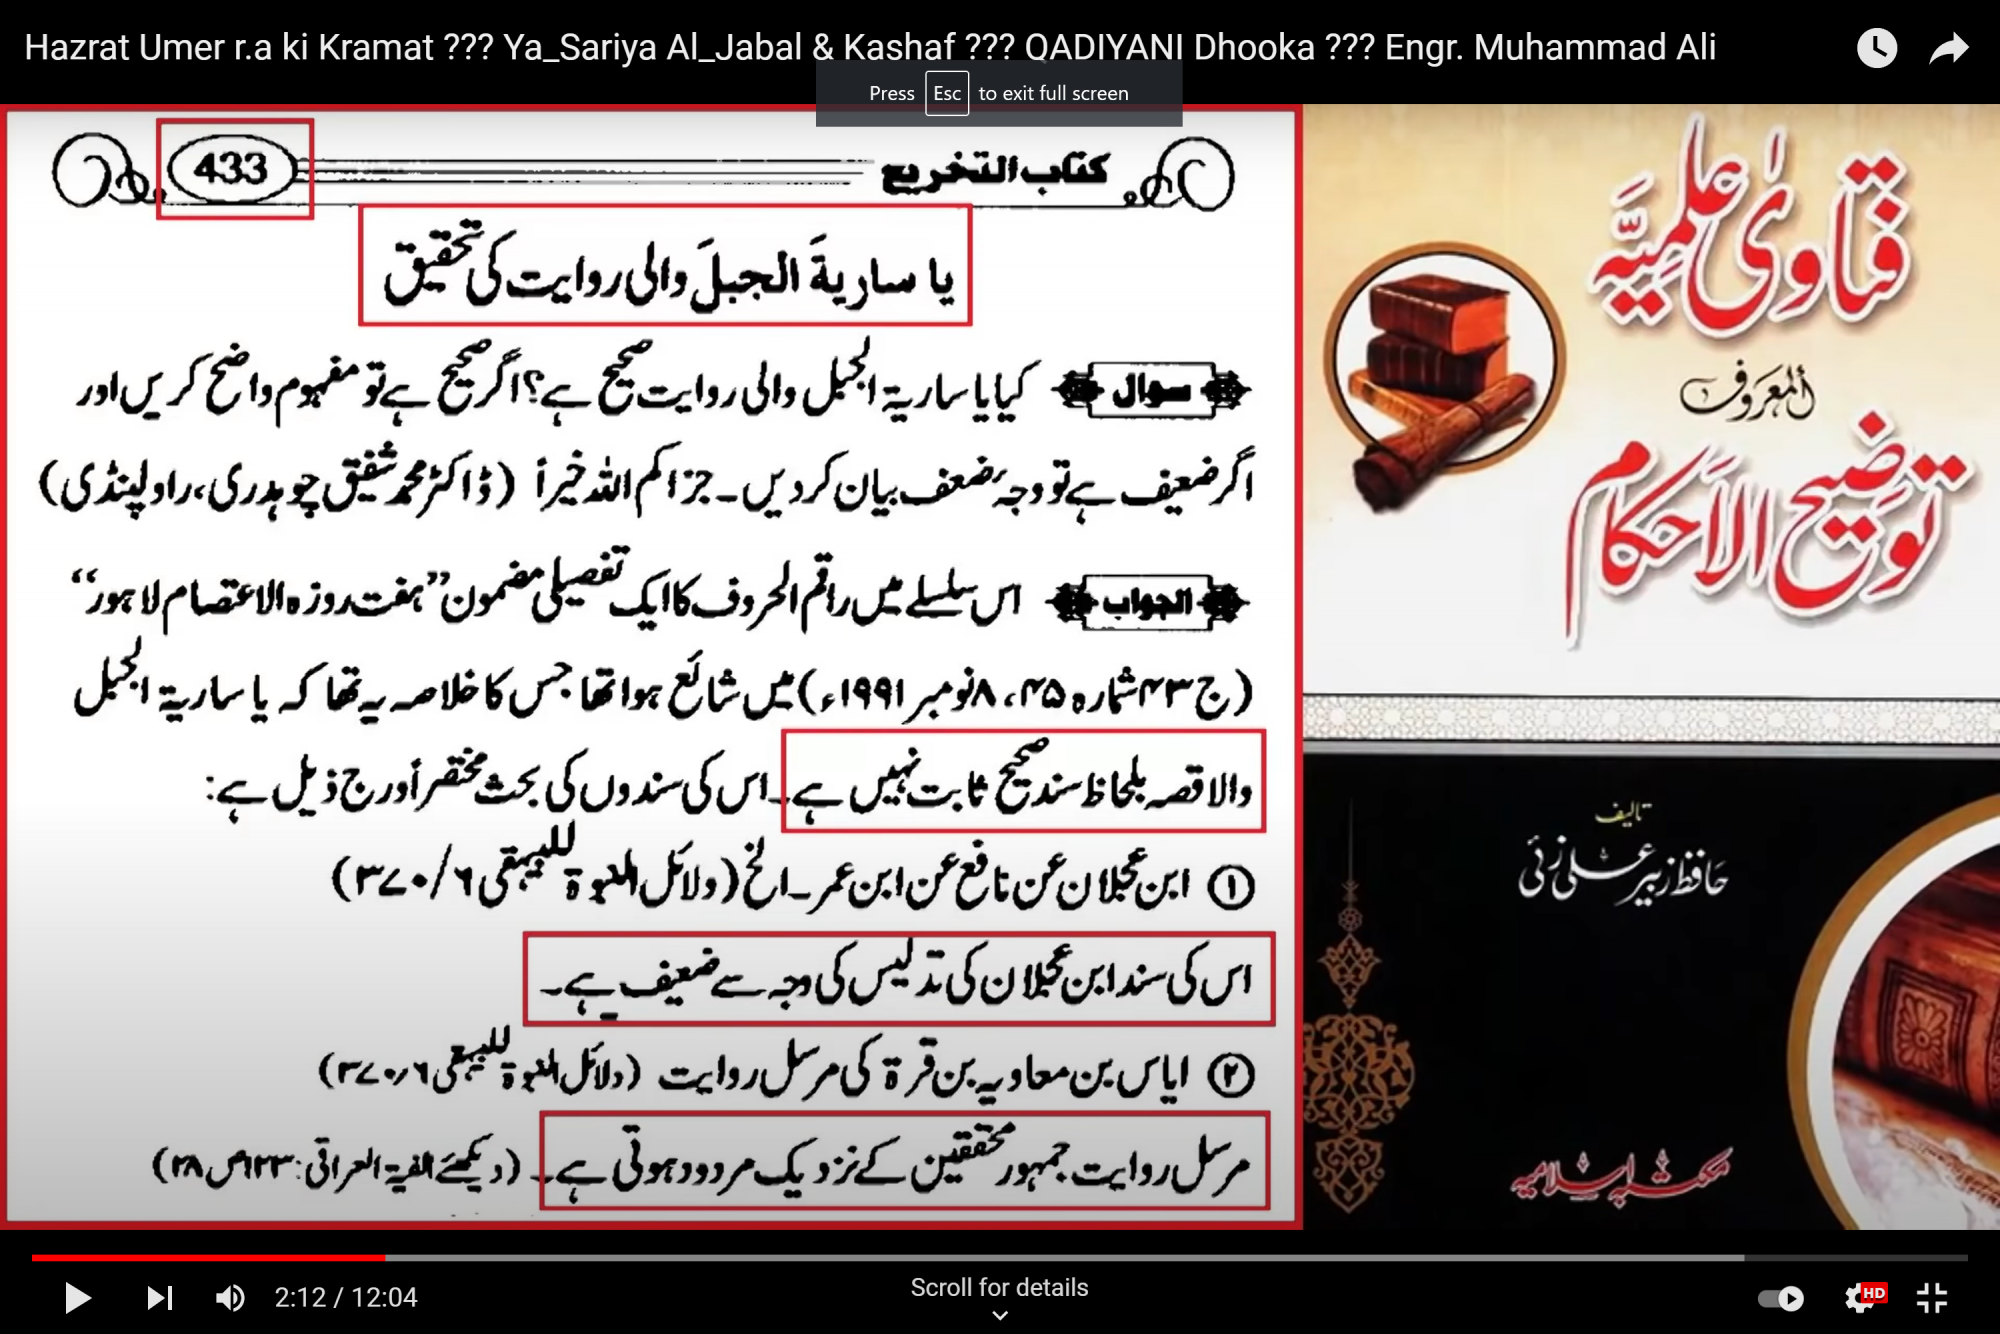 Hazrat Umer r.a ki Kramat ??? Ya_Sariya Al_Jabal & Kashaf ??? QADIYANI Dhooka ??? Engr. Muhammad Ali
Press Esc to exit full screen
کتاب التخریج 433
یا ساریةَ الجبلَ والی روایت کی تحقیق
سوال کیا یا ساریۃ الجبل والی روایت صحیح ہے؟ اگر صحیح ہے تو مفہوم واضح کریں اور
اگر ضعیف ہے تو وجہ ضعف بیان کر دیں۔ جزاکم اللہ خیراً (ڈاکٹر محمد شفیق چوہدری، راولپنڈی)
الجواب اس سلسلے میں راقم الحروف کا ایک تفصیلی مضمون ”ہفت روزہ الاعتصام لاہور“
(ج ۴۳ شمارہ ۴۵، ۸ نومبر ۱۹۹۱ء) میں شائع ہوا تھا جس کا خلاصہ یہ تھا کہ یا ساریۃ الجبل
والا قصہ بلحاظ سند صحیح ثابت نہیں ہے۔ اس کی سندوں کی بحث مختصراً درج ذیل ہے:
① ابن عجلان عن نافع عن ابن عمر۔ الخ (دلائل النبوۃ للبیہقی ۶/۳۷۰)
اس کی سند ابن عجلان کی تدلیس کی وجہ سے ضعیف ہے۔
② ایاس بن معاویہ بن قرۃ کی مرسل روایت (دلائل النبوۃ للبیہقی ۶/۳۷۰)
مرسل روایت جمہور محققین کے نزدیک مردود ہوتی ہے۔ (دیکھئے الفیۃ العراقی: ۱۲۳ ص ۲۸)
فتاویٰ علمیہ
المعروف
توضیح الاحکام
تالیف
حافظ زبیر علی زئی
مکتبہ اسلامیہ
2:12 / 12:04
Scroll for details
HD